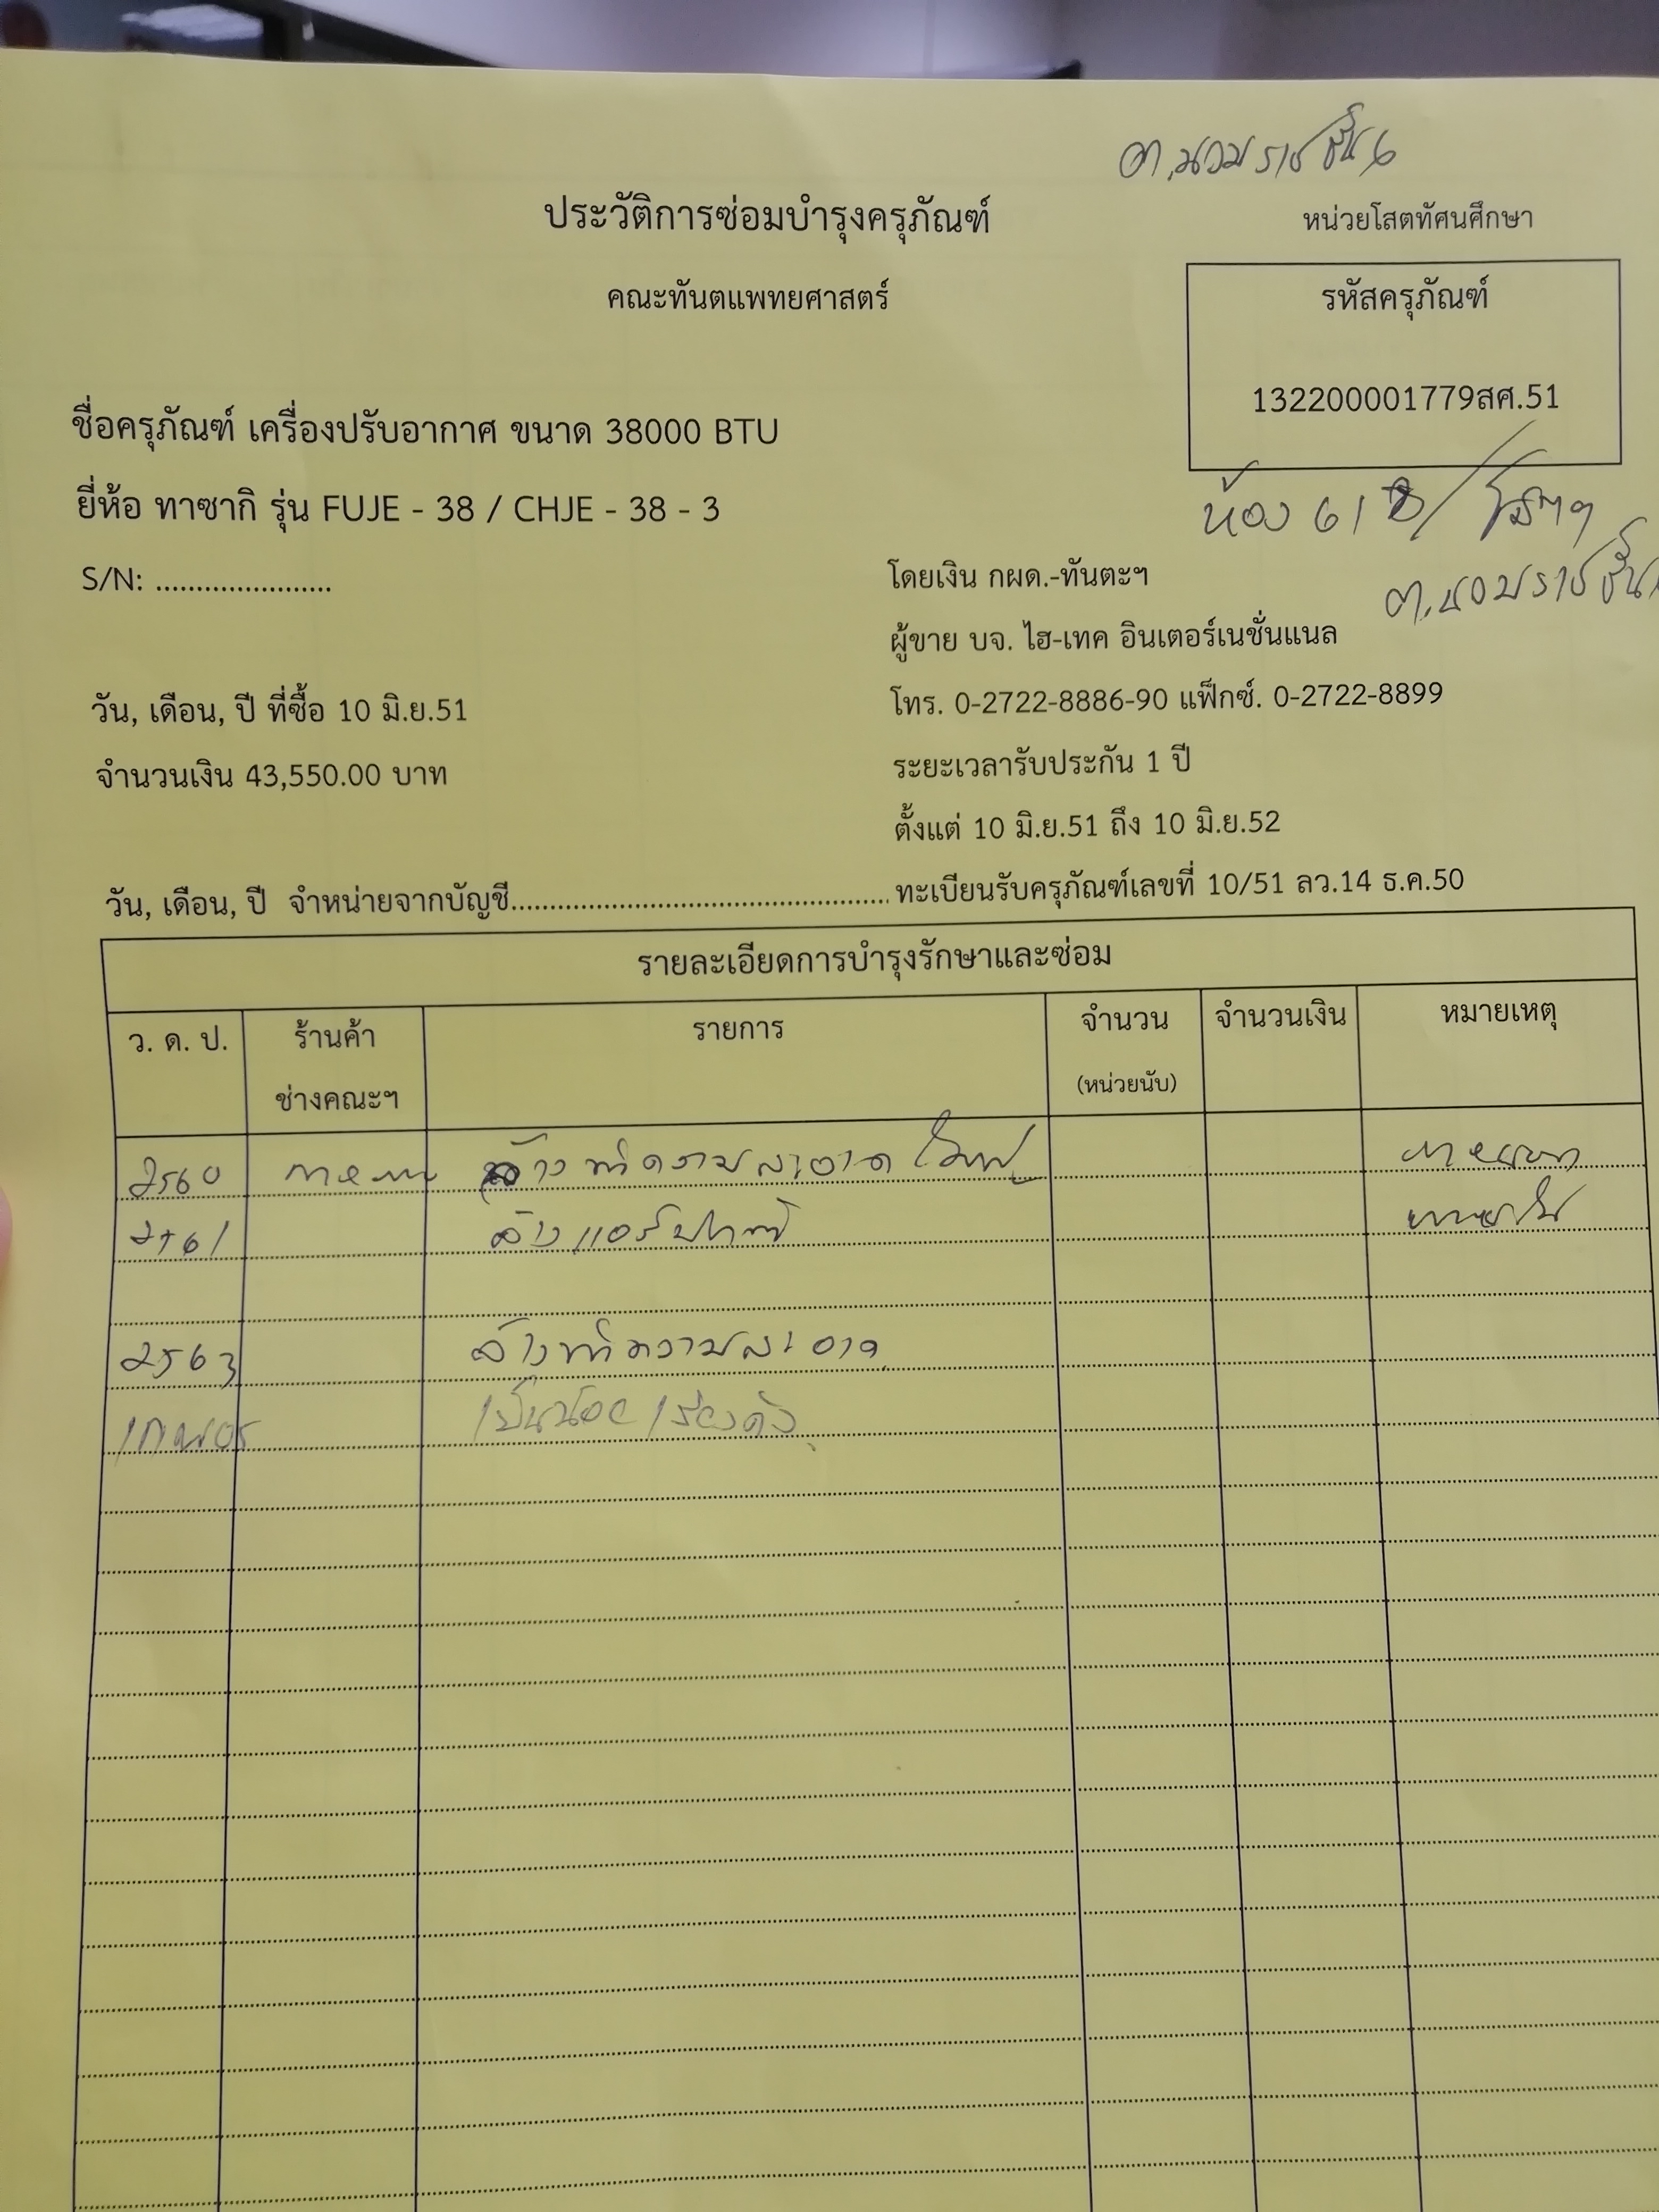 อ.นวมราชชั้น 6
ประวัติการซ่อมบำรุงครุภัณฑ์
หน่วยโสตทัศนศึกษา
คณะทันตแพทยศาสตร์
รหัสครุภัณฑ์
132200001779สศ.51
ชื่อครุภัณฑ์ เครื่องปรับอากาศ ขนาด 38000 BTU
ยี่ห้อ ทาซากิ รุ่น FUJE - 38 / CHJE - 38 - 3
ห้อง 61
S/N: ......................
โดยเงิน กผด.-ทันตะฯ
ผู้ขาย บจ. ไฮ-เทค อินเตอร์เนชั่นแนล
วัน, เดือน, ปี ที่ซื้อ 10 มิ.ย.51
โทร. 0-2722-8886-90 แฟ็กซ์. 0-2722-8899
จำนวนเงิน 43,550.00 บาท
ระยะเวลารับประกัน 1 ปี
ตั้งแต่ 10 มิ.ย.51 ถึง 10 มิ.ย.52
วัน, เดือน, ปี จำหน่ายจากบัญชี................................................ ทะเบียนรับครุภัณฑ์เลขที่ 10/51 ลว.14 ธ.ค.50
รายละเอียดการบำรุงรักษาและซ่อม
ว. ด. ป. ร้านค้า รายการ จำนวน จำนวนเงิน หมายเหตุ
ช่างคณะฯ (หน่วยนับ)
2560 ล้างทำความสะอาด
2561 ล้างแอร์
2563 ล้างทำความสะอาด
เป็นน้อย เสียงดัง